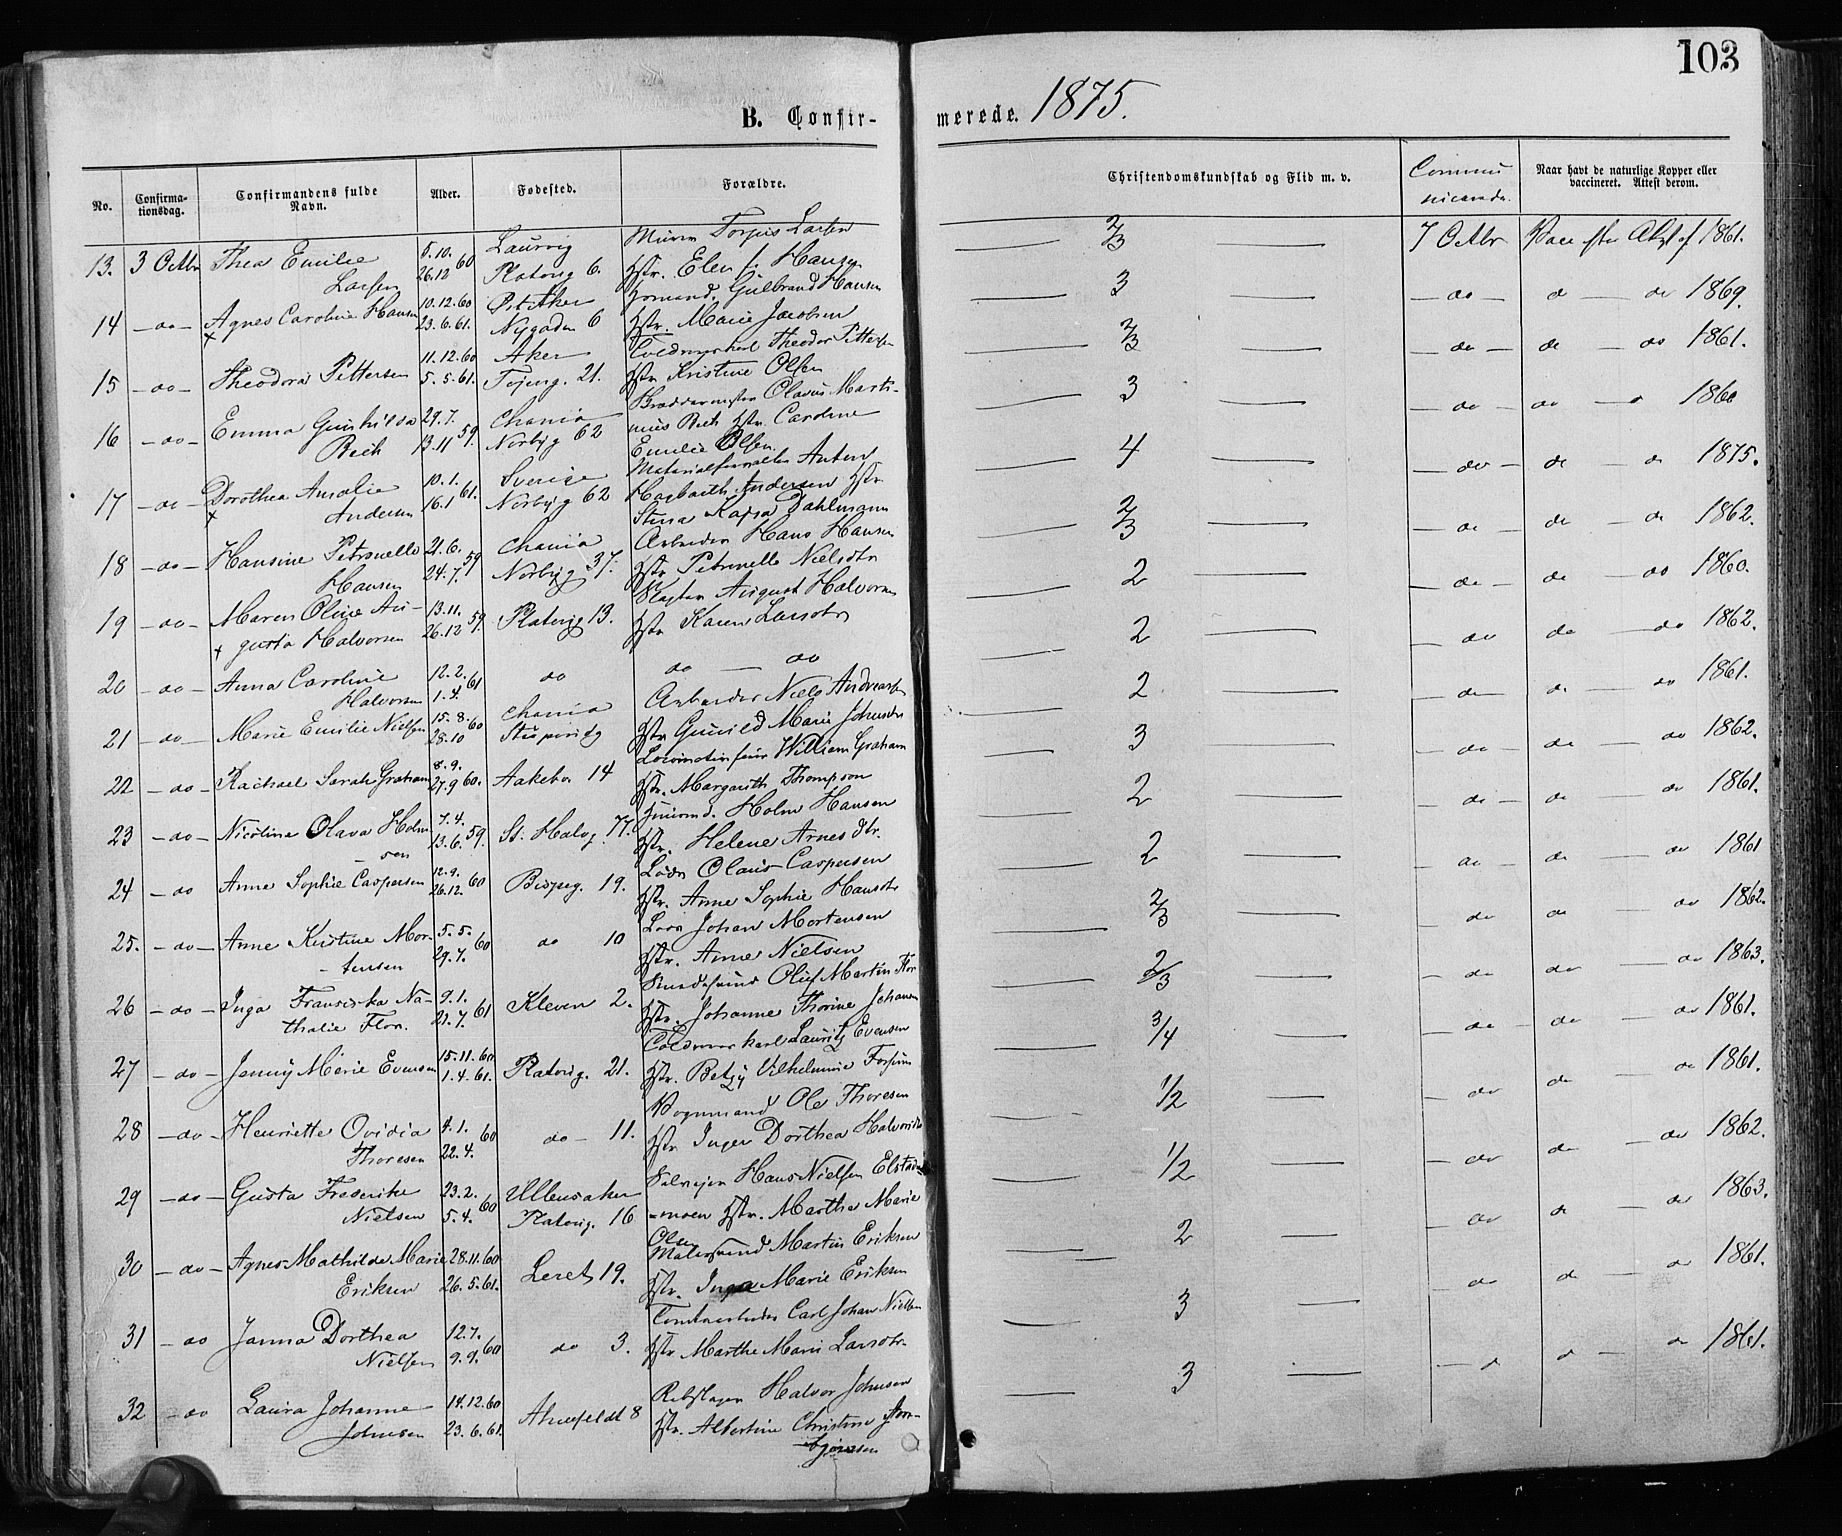 103
B. Confir-
merede. 1875.
No.
Confirma-
tionsdag.
Confirmandens fulde
Navn.
Alder.
Fødested.
Forældre.
Christendomskundskab og Flid m. v.
Commu
nicerede.
Naar havt de naturlige Kopper eller
vaccineret. Attest derom.
13. 3 Octbr Thea Emilie 5.10. 60 Laurvig Murer Torgus Larsen 2/3 7 Octbr 1861.
Larsen 26.12 Platoug. 6. Hstr. Elen Hansen
14 -do- Agnes Caroline Hansen 10.12.60 Gulbrand Hansen 3 -do- d do 1869.
x 23.6.61. Nygaden 6 Hstr. Marie Jacobsen
15 -do- Theodora Pettersen 11.12.60 Aker Theodor Pettersen 2/3 -do- do do 1861.
5.5.61. Tøieng. 21. Hstr Kristine Olsen
16 -do- Emma Gunhilda 29.7. Chania Olavus Marti- 3 -do- do 1860
Bech 13.11 59. Norbyg 62 nius Bech Hstr. Caroline
Emilie Olsen.
17 -do- Dorothea Amalie 10.1. Sverige Materialforvalter Anders 4 -do- do do 1875.
x Andersen 16.1 61. Norbyg 62 Andersen Hstr
Stina Kajsa Dahlmann
18 -do- Hansine Petronelle 21.6. Chania Arbeider Hans Hansen 2/3 -do- do do 1862.
Hansen 24.7. 59 Norbyg 37. Hstr Petronelle Nielsdtr
19 -do- Maren Oline Au- 13.11. 59. Platoug 13. Slagter August Halvorsen 2 -do- do do 1860.
x gusta Halvorsen 26.12 Hstr Karen Larsdtr
20 -do- Anna Caroline 12.2. 61 do do — do 2 -do do do 1862.
Halvorsen 1.4.
21 -do- Marie Emilie Nielsen 15.8. 60 Chania Arbeider Niels Andreasen 2 -do- do do 1861.
28.10 Hstr Gunild Marie Johnsdtr
22 -do- Rachael Sarah Graham 8.9. Aakebg 14 William Graham 3 -do do do 1862.
27.9 60. Hstr. Margarith Thompson
23 -do- Nicoline Olava Holm 7.4. 59. St. Halvg. 77. Holm Hansen 2 -do- do do 1861.
- sen 13.6. Hstr. Helene Arnesdtr.
24 -do Anne Sophie Caspersen 12.9. 60 Bispeg. 19. Lods Olaus Caspersen 2 -do do do 1861
26.12. Hstr. Anne Sophie Hansdtr
25. -do- Anne Kristine Mor- 5.5. 60 do 10 Lods Johan Mortensen 2/3 -do do do 1862.
- tensen 29.7. Hstr. Anne Nielsen
26 -do- Inga Fransiska Na- 9.1. 61 Kleven 2. Smedesvend Oluf Martin Flor 2/3 -do do do 1863.
thalie Flor. 21.7. Hstr. Johanne Thorine Johansen
27 -do- Jenny Marie Evensen 15.11.60 Platoug. 21. Lauritz Evensen 3/4 -do do do 1861.
1.4.61. Hstr. Betzy Vilhelmine
28 -do- Henriette Ovidia 4.1. 60 do - 11. Vognmand Ole Thoresen 1/2 -do do do 1861.
Thoresen 22.4. Hstr Inger Dorthea Halvorsdtr
29 -do- Gusta Frederike 23.2. 60 Ullensaker Hans Nielsen Elstad 1/2 -do do do 1862.
Nielsen 5.4. Platoug. 16 -moen Hstr. Martha Marie
Olsen
30 -do- Agnes Mathilde Marie 28.11.60 Leret 19. Malersvend Martin Eriksen 2 -do do do 1863.
Eriksen 26.5.61. Hstr. Inga Marie Eriksen
31 -do Janna Dorthea 12.7. 60 do 3. Carl Johan Nielsen 3 do do do 1861.
Nielsen 9.9. Hstr Marthe Marie Larsdtr.
32 -do Laura Johanne 14.12.60 Ahlefeldt 8 Rebslager Halvor Johnsen 3 -d d d 1861.
Johnsen 23.6.61. Hstr. Albertine Christine